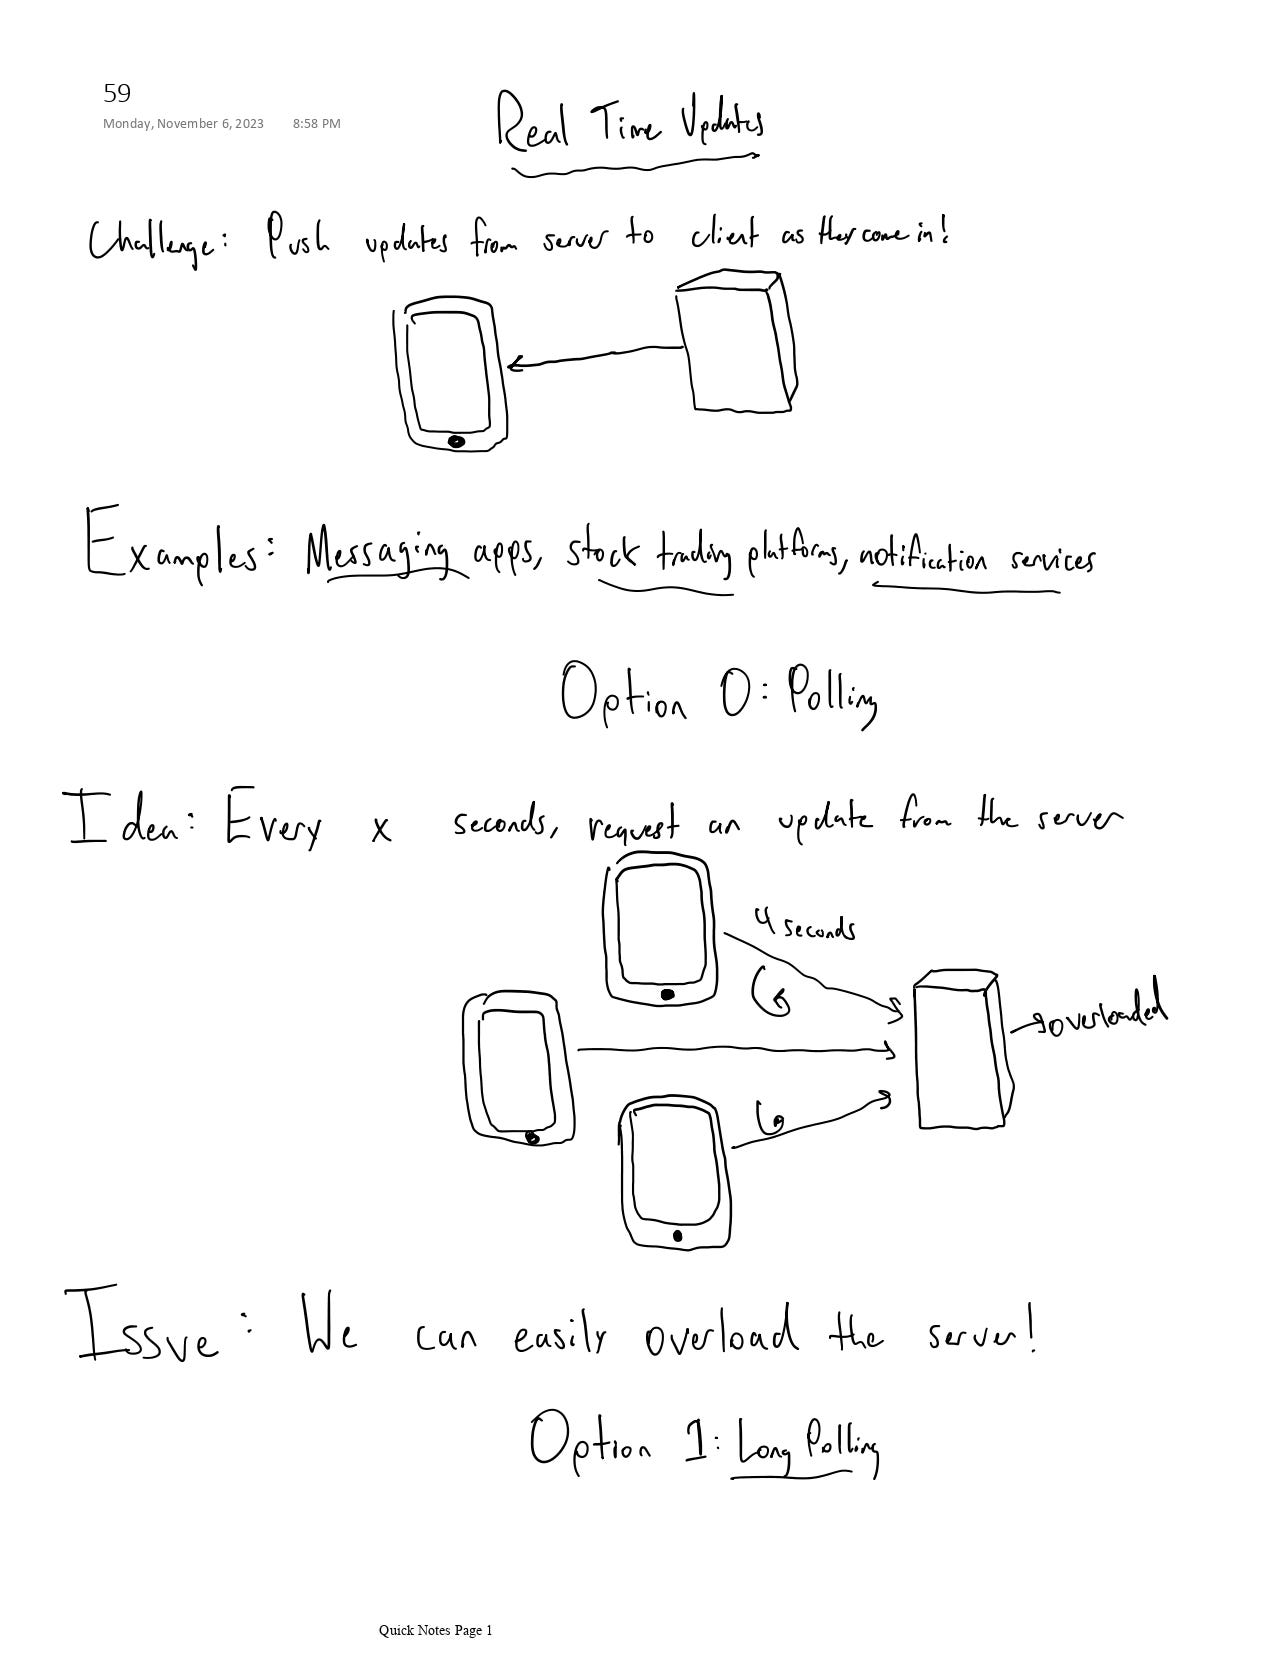 59
Monday, November 6, 2023 8:58 PM
Real Time Updates
Challenge: Push updates from server to client as they come in!
Examples: Messaging apps, stock trading platforms, notification services
Option 0: Polling
Idea: Every x seconds, request an update from the server
4 seconds
overloaded
Issue: We can easily overload the server!
Option 1: Long Polling
Quick Notes Page 1